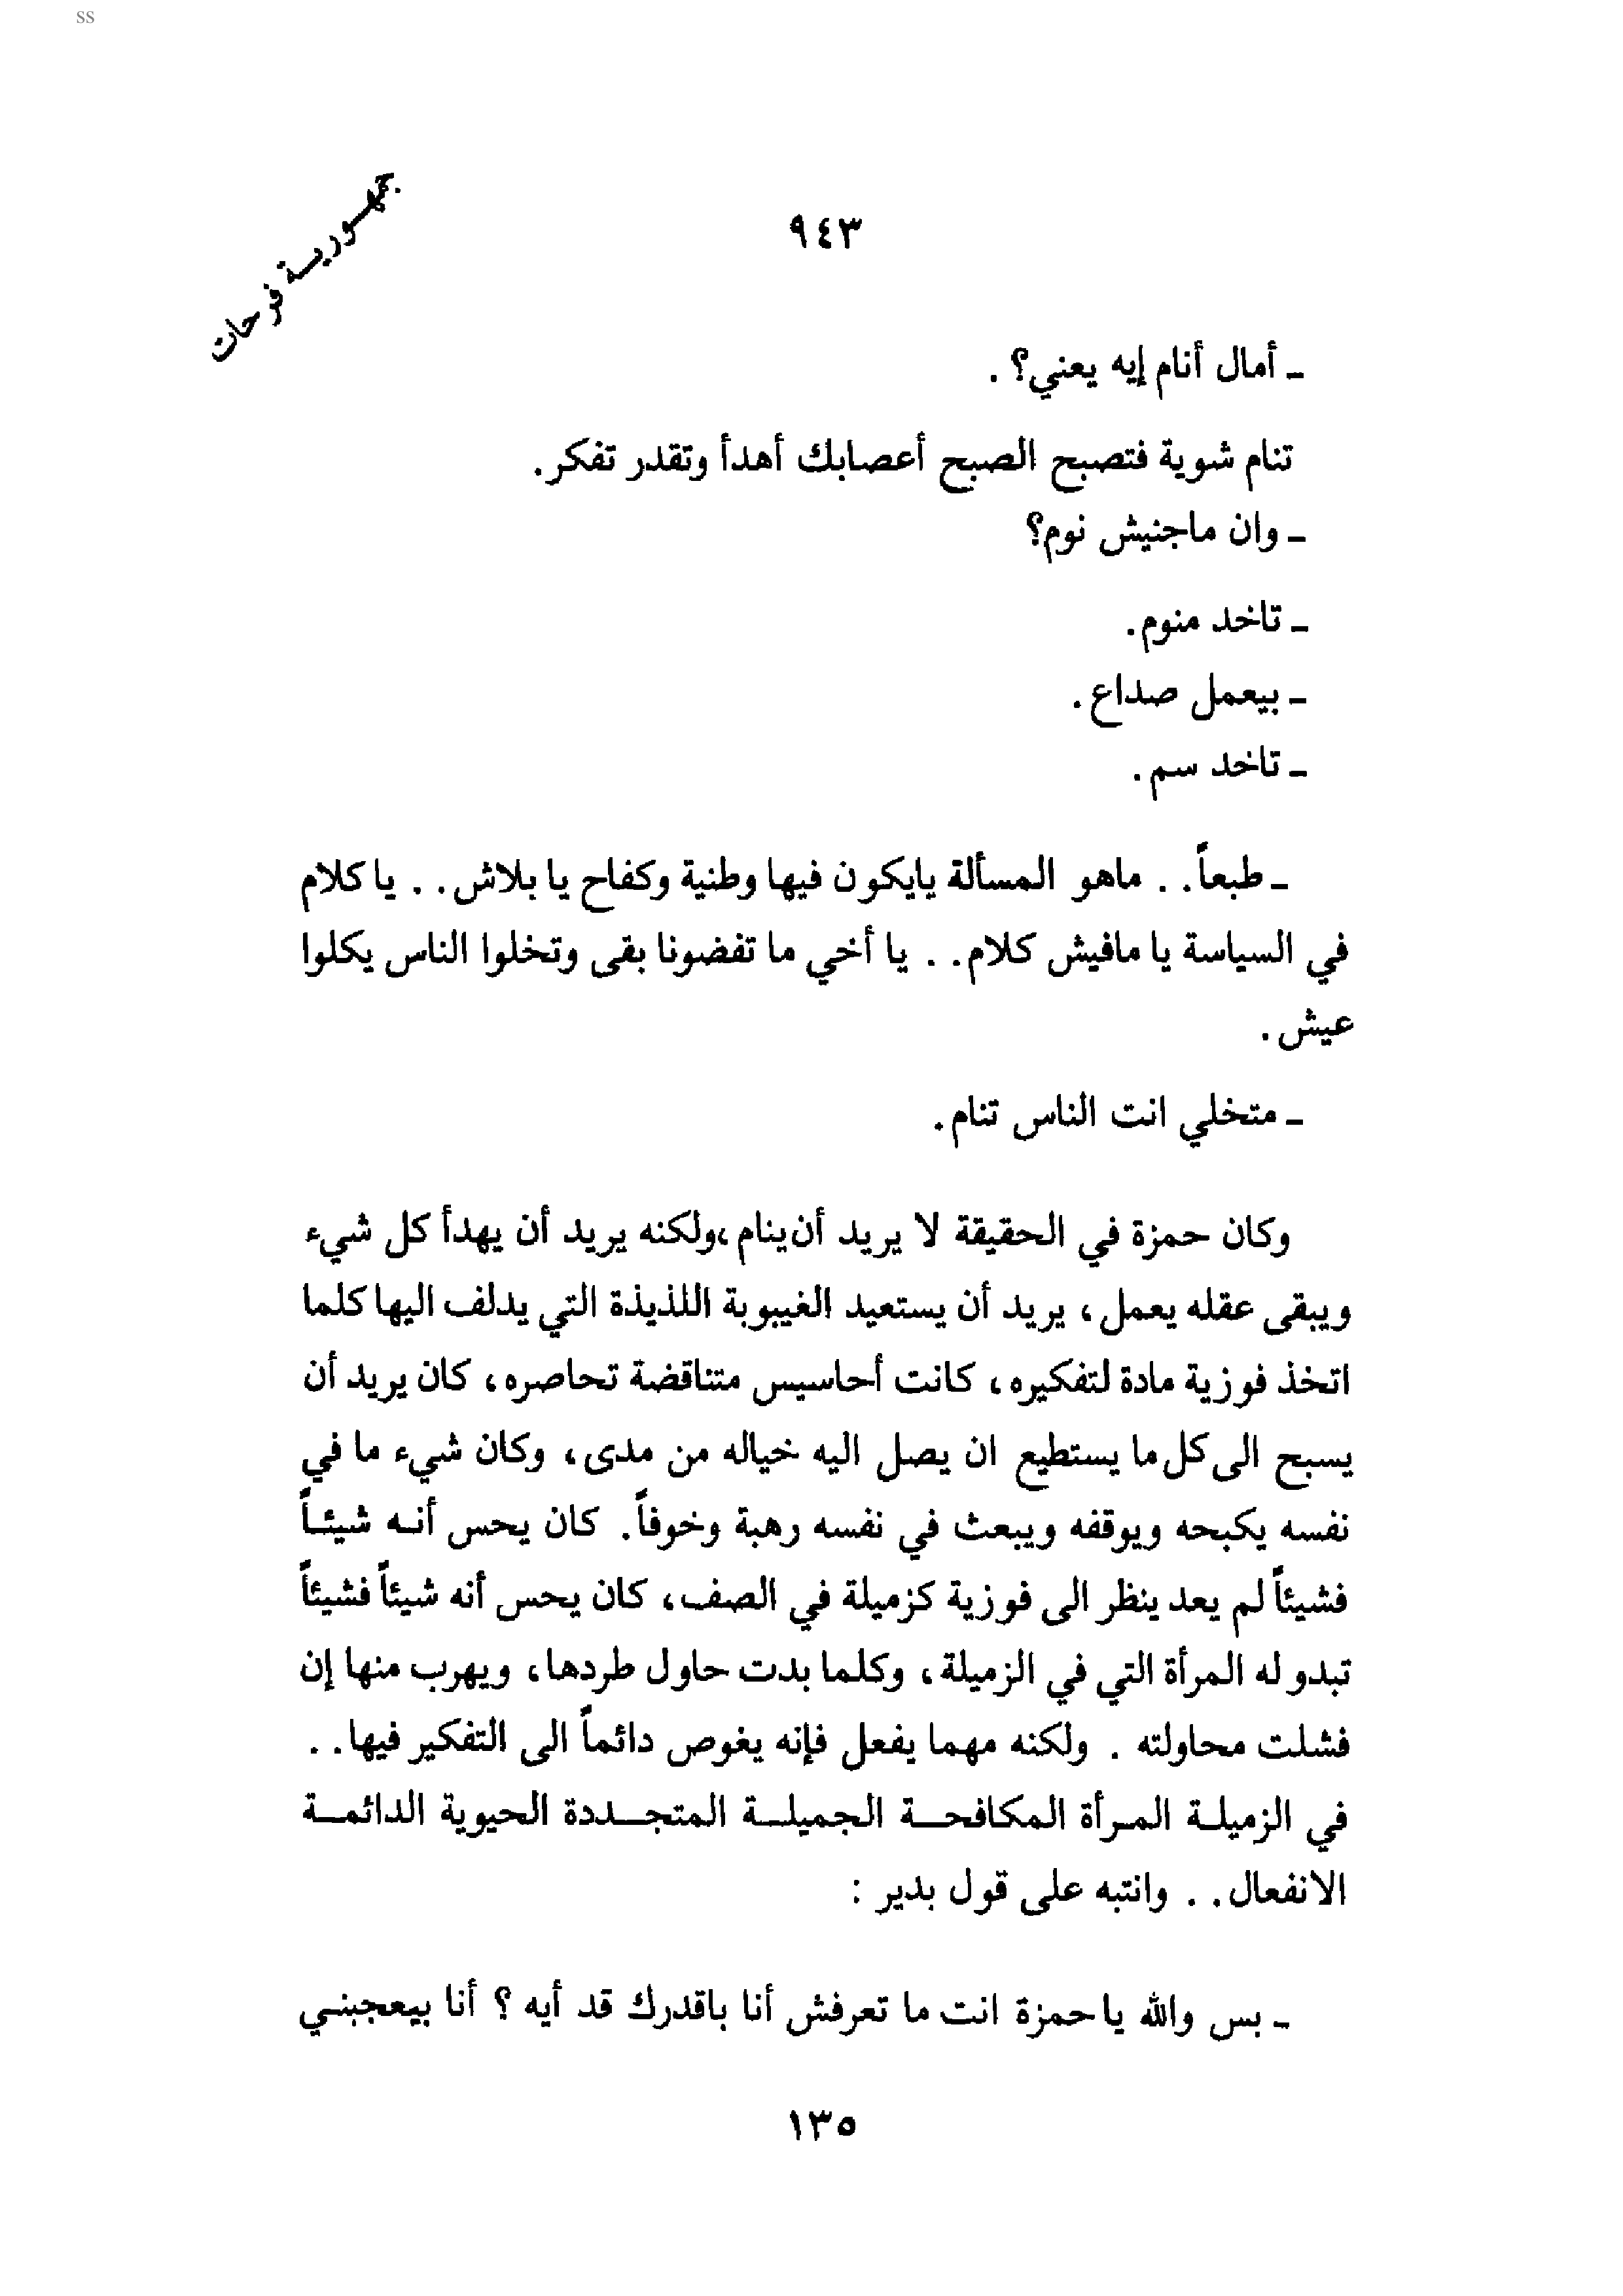 ss
جمهورية فرحات
٩٤٣
ـ أمال أنام إيه يعني؟ .
تنام شوية فتصبح الصبح أعصابك أهدأ وتقدر تفكر.
ـ وان ماجنيش نوم؟
ـ تاخد منوم.
ـ بيعمل صداع.
ـ تاخد سم.
ـ طبعاً. . ماهو المسألة يايكون فيها وطنية وكفاح يا بلاش. . يا كلام
في السياسة يا مافيش كلام. . يا أخي ما تفضونا بقى وتخلوا الناس يكلوا
عيش.
ـ متخلي انت الناس تنام.
وكان حمزة في الحقيقة لا يريد أن ينام، ولكنه يريد أن يهدأ كل شيء
ويبقى عقله يعمل، يريد أن يستعيد الغيبوبة اللذيذة التي يدلف اليها كلما
اتخذ فوزية مادة لتفكيره، كانت أحاسيس متناقضة تحاصره، كان يريد أن
يسبح الى كل ما يستطيع ان يصل اليه خياله من مدى، وكان شيء ما في
نفسه يكبحه ويوقفه ويبعث في نفسه رهبة وخوفاً. كان يحس أنـه شيئـاً
فشيئاً لم يعد ينظر الى فوزية كزميلة في الصف، كان يحس أنه شيئاً فشيئاً
تبدو له المرأة التي في الزميلة، وكلما بدت حاول طردها، ويهرب منها إن
فشلت محاولته . ولكنه مهما يفعل فإنه يغوص دائماً الى التفكير فيها. .
في الزميلـة المـرأة المكافحـة الجميلـة المتجـددة الحيوية الدائمـة
الانفعال. . وانتبه على قول بدير :
ـ بس والله يا حمزة انت ما تعرفش أنا باقدرك قد أيه ؟ أنا بيعجبنـي
١٣٥